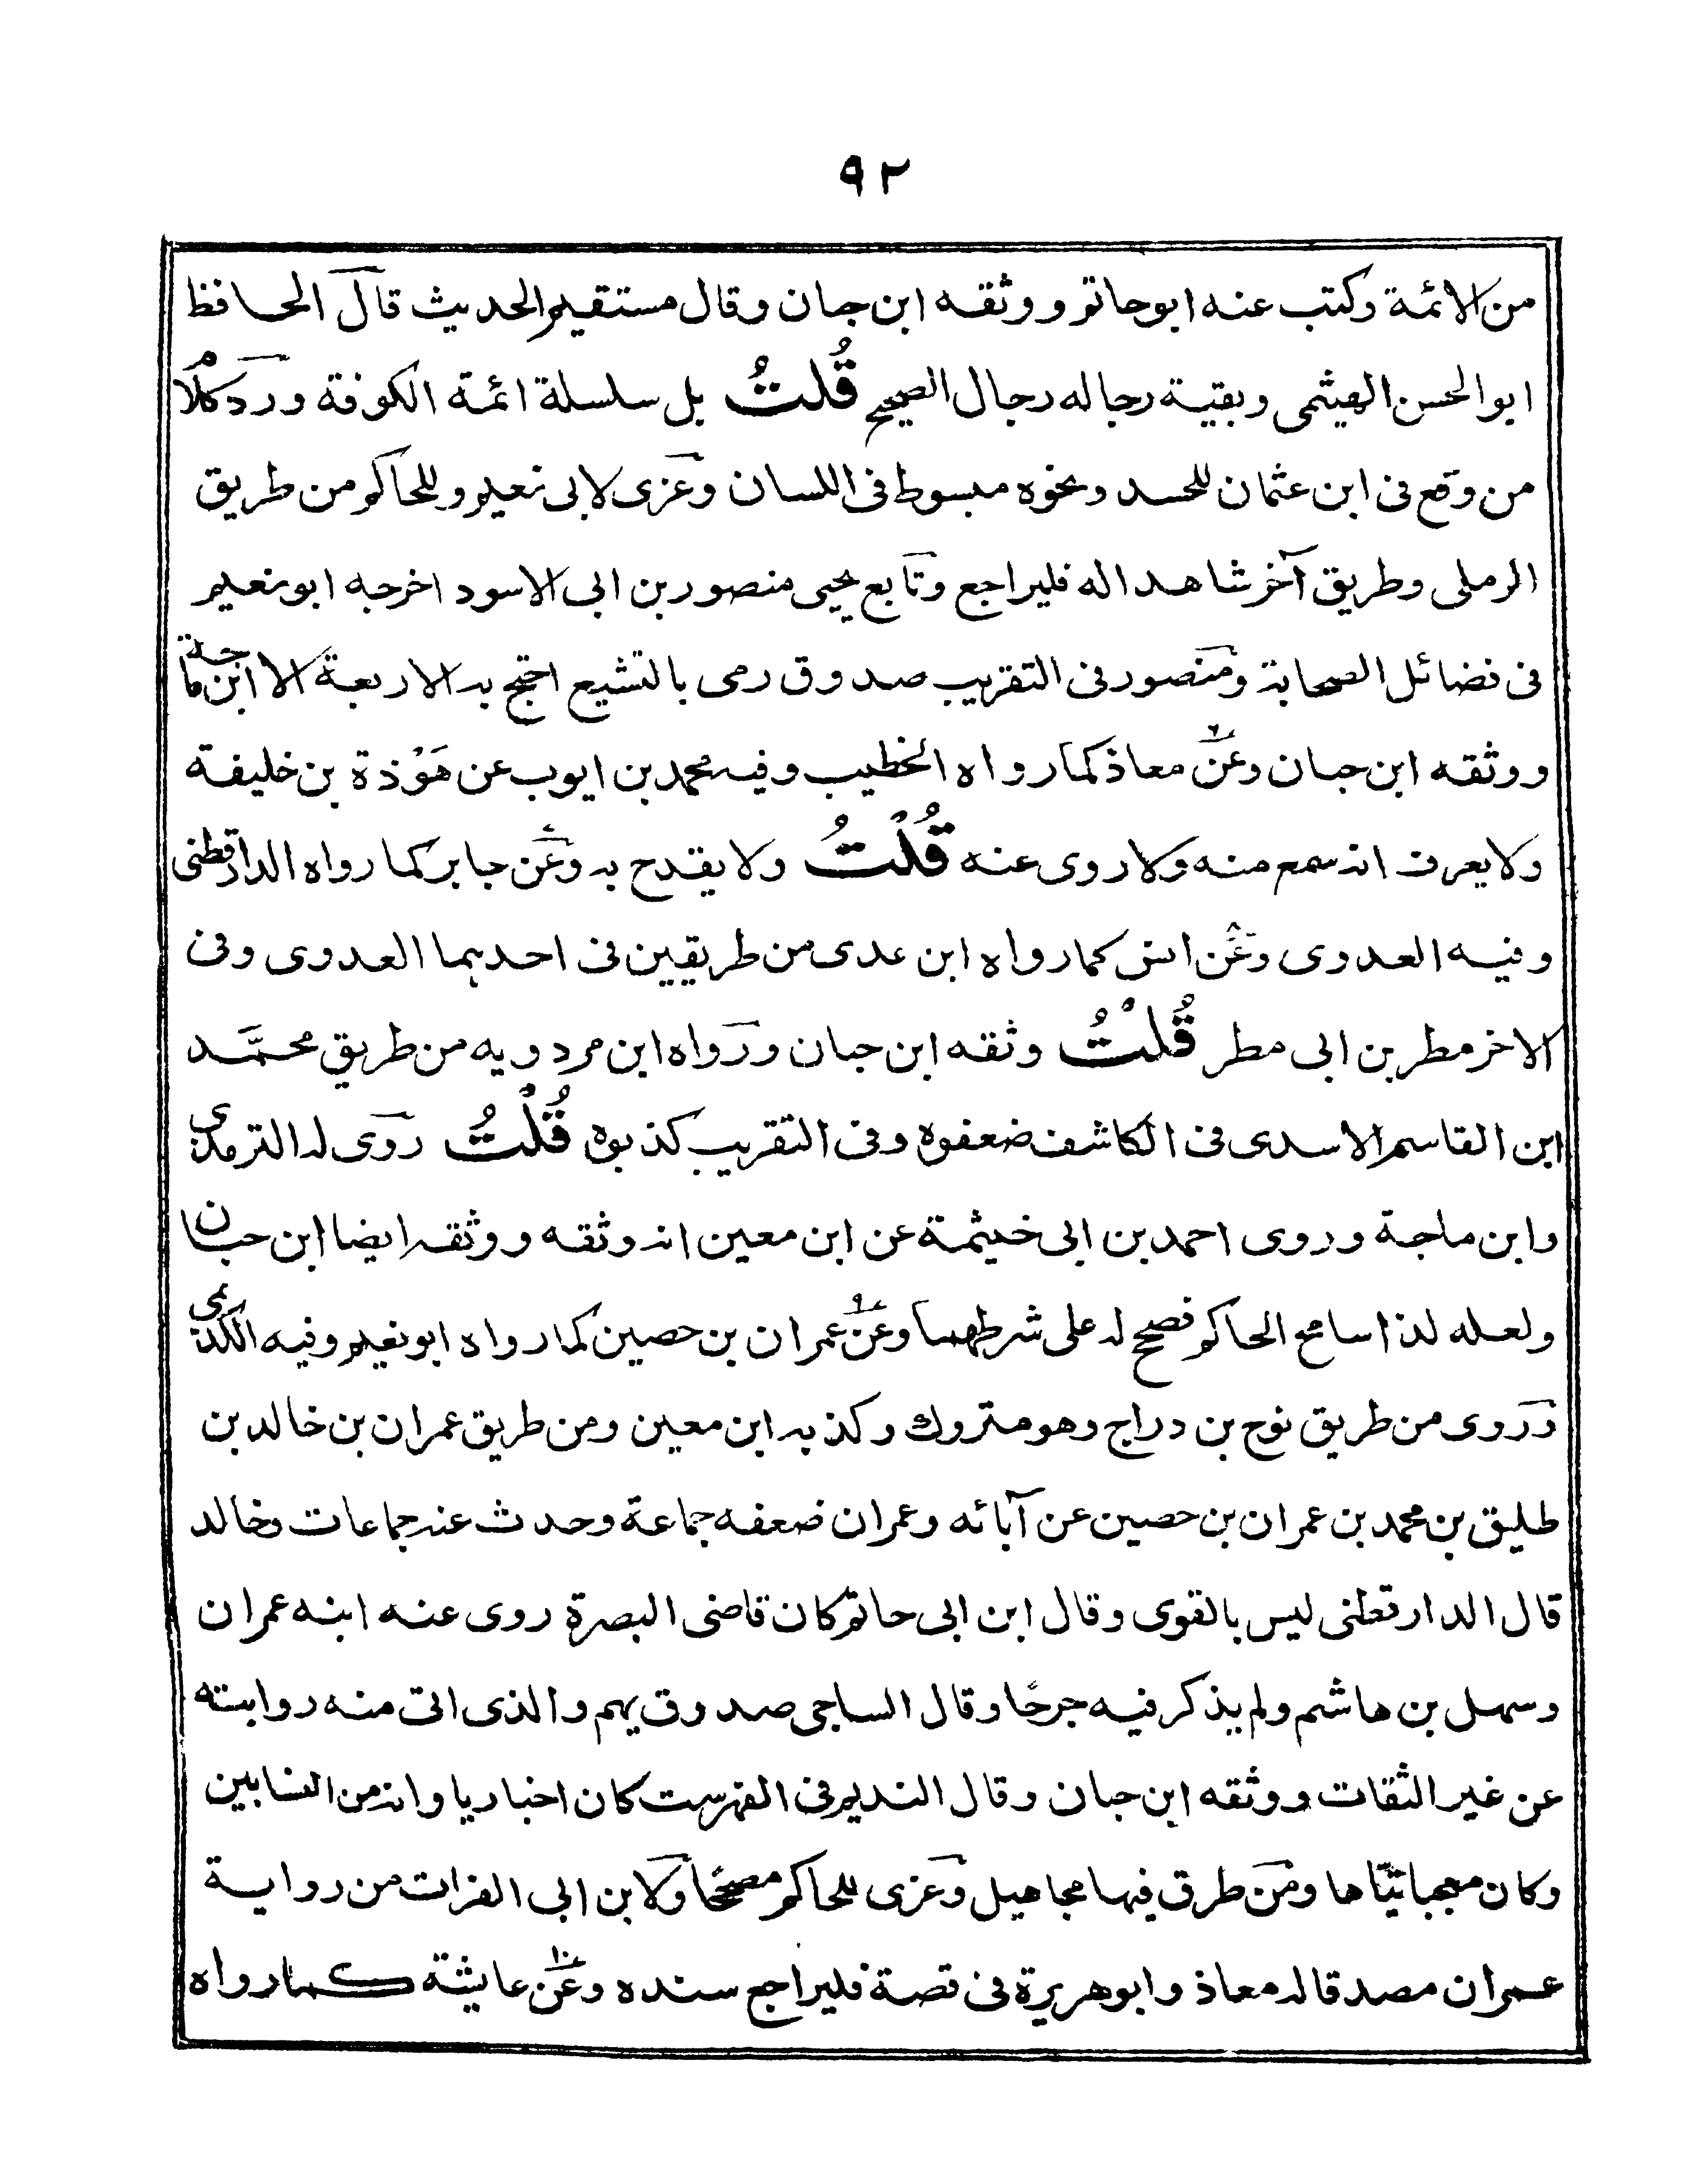 ٩٢
من الائمة وكتب عنه ابو حاتم ووثقه ابن حبان وقال مستقيم الحديث قال الحافظ
ابو الحسن الهيثمى وبقية رجاله رجال الصحيح قُلتُ بل سلسلة ائمة الكوفة ورد كلام
من وقع فى ابن عثمان للحسد ونحوه مبسوط فى اللسان وعزى لابى نعيم وللحاكم من طريق
الرملى وطريق آخر شاهدا له فليراجع وتابع يحيى منصور بن ابى الاسود اخرجه ابو نعيم
فى فضائل الصحابة ومنصور فى التقريب صدوق رمى بالتشيع احتج به الاربعة الا ابن ماجة
ووثقه ابن حبان وعن معاذ كما رواه الخطيب وفيه محمد بن ايوب عن هَوْذة بن خليفة
ولا يعرف انه سمع منه ولا روى عنه قُلْتُ ولا يقدح به وعن جابر كما رواه الدارقطنى
وفيه العدوى وعن انس كما رواه ابن عدى من طريقين فى احدهما العدوى وفى
الاخر مطر بن ابى مطر قُلْتُ وثقه ابن حبان ورواه ابن مردويه من طريق محمَّد
ابن القاسم الاسدى فى الكاشف ضعفوه وفى التقريب كذبوه قُلْتُ روى له الترمذى
وابن ماجة وروى احمد بن ابى خيثمة عن ابن معين انه وثقه ووثقه ايضا ابن حبان
ولعله لذا سامح الحاكم فصحح له على شرطهما وعن عمران بن حصين كما رواه ابو نعيم وفيه الكديمى
وروى من طريق نوح بن دراج وهو متروك وكذبه ابن معين ومن طريق عمران بن خالد بن
طليق بن محمد بن عمران بن حصين عن آبائه وعمران ضعفه جماعة وحدث عنه جماعات وخالد
قال الدارقطنى ليس بالقوى وقال ابن ابى حاتم كان قاضى البصرة روى عنه ابنه عمران
وسهل بن هاشم ولم يذكر فيه جرحًا وقال الساجى صدوق يهم والذى اتى منه روايته
عن غير الثقات ووثقه ابن حبان وقال النديم فى الفهرست كان اخباريا وانه من النسابين
وكان معجبا تيّاها ومن طرق فيها مجاهيل وعزى للحاكم مصححًا ولابن ابى الفرات من رواية
عمران مصد قاله معاذ وابو هريرة فى قصة فليراجع سنده وعن عايشة كما رواه